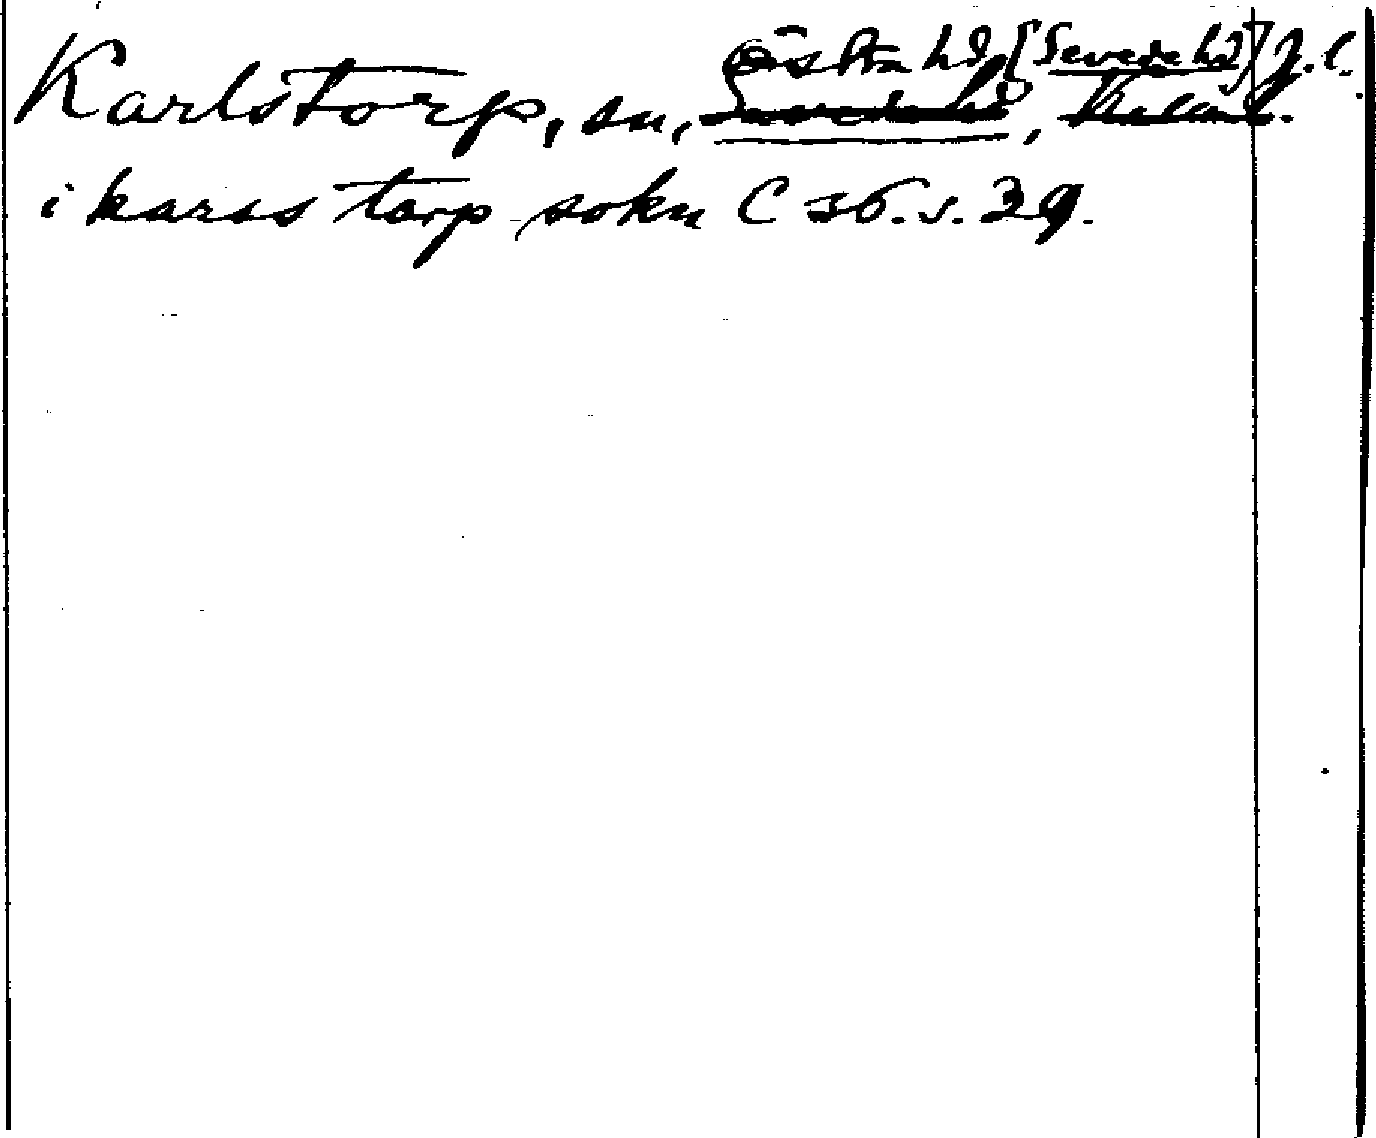 Östra hd, [Sevede hd] J.l.
Karlstorp, sn, Sevede hd, Kalmar l.
i karss torp sokn C 36. s. 39.